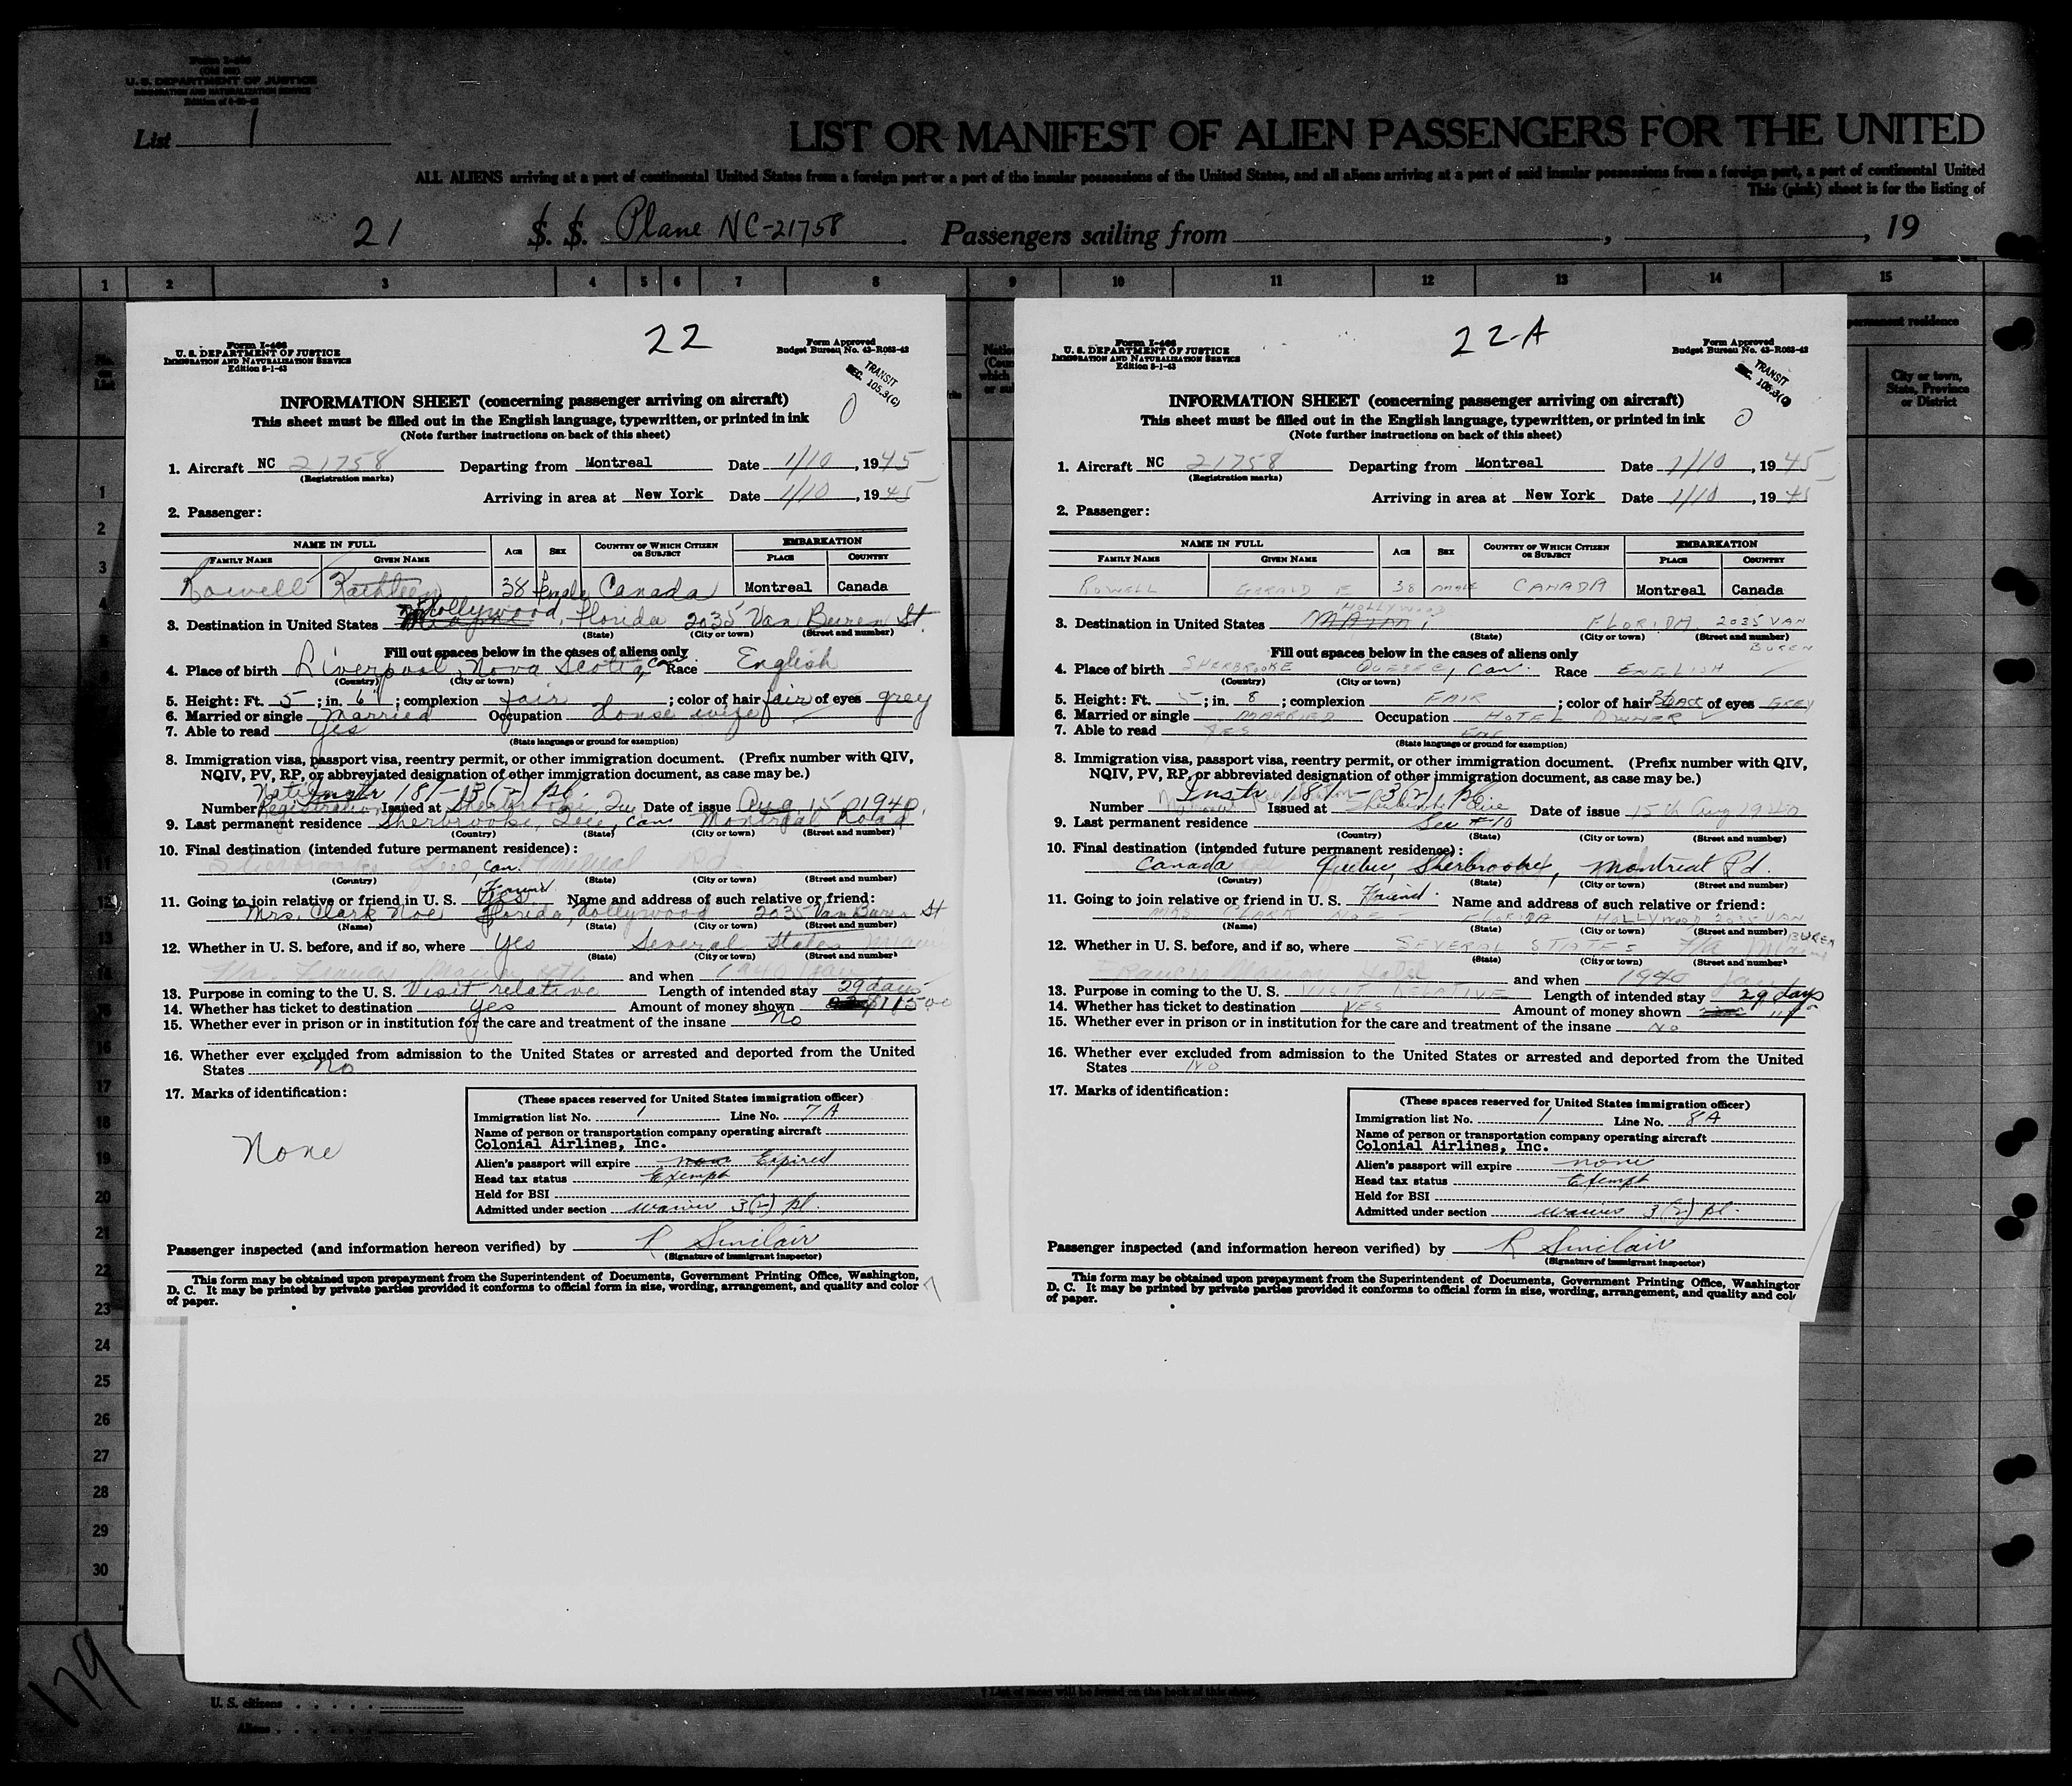 U. S. DEPARTMENT OF JUSTICE
IMMIGRATION AND NATURALIZATION SERVICE
List 1
LIST OR MANIFEST OF ALIEN PASSENGERS FOR THE UNITED
ALL ALIENS arriving at a port of continental United States from a foreign port or a port of the insular possessions of the United States, and all aliens arriving at a port of said insular possessions from a foreign port, a port of continental United
This (pink) sheet is for the listing of
21 S. S. Plane NC-21758 Passengers sailing from , , 19
1 2 3 4 5 6 7 8 9 10 11 12 13 14 15
permanent residence
City or town,
State, Province
or District
22
Form I-466
U. S. DEPARTMENT OF JUSTICE
IMMIGRATION AND NATURALIZATION SERVICE
Edition 8-1-43
Form Approved
Budget Bureau No. 43-R063-42
TRANSIT
SEC. 105.3(C)
INFORMATION SHEET (concerning passenger arriving on aircraft)
This sheet must be filled out in the English language, typewritten, or printed in ink
(Note further instructions on back of this sheet)
1. Aircraft NC 21758 Departing from Montreal Date 1/10, 1945
(Registration marks)
Arriving in area at New York Date 1/10, 1945
2. Passenger:
NAME IN FULL AGE SEX COUNTRY OF WHICH CITIZEN OR SUBJECT EMBARKATION
FAMILY NAME GIVEN NAME PLACE COUNTRY
Rowell Kathleen 38 female Canada Montreal Canada
3. Destination in United States Hollywood, Florida 2035 Van Buren St.
(State) (City or town) (Street and number)
Fill out spaces below in the cases of aliens only
4. Place of birth Liverpool, Nova Scotia, Can. Race English
(Country) (City or town)
5. Height: Ft. 5; in. 6"; complexion fair; color of hair fair of eyes grey
6. Married or single Married Occupation House wife
7. Able to read Yes
(State language or ground for exemption)
8. Immigration visa, passport visa, reentry permit, or other immigration document. (Prefix number with QIV,
NQIV, PV, RP, or abbreviated designation of other immigration document, as case may be.)
Instr 187-3(2) pl.
Number Registration Issued at Sherbrooke, Que Date of issue Aug 15 1940.
9. Last permanent residence Sherbrooke, Que, Can Montreal Road
(Country) (State) (City or town) (Street and number)
10. Final destination (intended future permanent residence):
Sherbrooke Que, Can. Montreal Rd
(Country) (State) (City or town) (Street and number)
11. Going to join relative or friend in U. S. Yes Friend Name and address of such relative or friend:
Mrs. Clark Noe Florida, Hollywood 2035 Van Buren St
(Name) (State) (City or town) (Street and number)
12. Whether in U. S. before, and if so, where Yes Several States Miami
(State) (City or town) (Street and number)
and when 1940 Jan
13. Purpose in coming to the U. S. Visit relative Length of intended stay 29 days
14. Whether has ticket to destination Yes Amount of money shown $115.00
15. Whether ever in prison or in institution for the care and treatment of the insane No
16. Whether ever excluded from admission to the United States or arrested and deported from the United
States No
17. Marks of identification:
None
(These spaces reserved for United States immigration officer)
Immigration list No. 1 Line No. 7A
Name of person or transportation company operating aircraft
Colonial Airlines, Inc.
Alien's passport will expire none Expired
Head tax status Exempt
Held for BSI
Admitted under section waiver 3(2) pl.
Passenger inspected (and information hereon verified) by R Sinclair
(Signature of immigrant inspector)
This form may be obtained upon prepayment from the Superintendent of Documents, Government Printing Office, Washington,
D. C. It may be printed by private parties provided it conforms to official form in size, wording, arrangement, and quality and color
of paper.
22-A
Form I-466
U. S. DEPARTMENT OF JUSTICE
IMMIGRATION AND NATURALIZATION SERVICE
Edition 8-1-43
Form Approved
Budget Bureau No. 43-R063-42
TRANSIT
SEC. 105.3(C)
INFORMATION SHEET (concerning passenger arriving on aircraft)
This sheet must be filled out in the English language, typewritten, or printed in ink
(Note further instructions on back of this sheet)
1. Aircraft NC 21758 Departing from Montreal Date 1/10, 1945
(Registration marks)
Arriving in area at New York Date 1/10, 1945
2. Passenger:
NAME IN FULL AGE SEX COUNTRY OF WHICH CITIZEN OR SUBJECT EMBARKATION
FAMILY NAME GIVEN NAME PLACE COUNTRY
ROWELL GERALD E 38 MALE CANADA Montreal Canada
HOLLYWOOD
3. Destination in United States MIAMI FLORIDA 2035 VAN
(State) (City or town) (Street and number)
BUREN
Fill out spaces below in the cases of aliens only
4. Place of birth SHERBROOKE QUEBEC, Can. Race ENGLISH
(Country) (City or town)
5. Height: Ft. 5; in. 8; complexion FAIR; color of hair BLACK of eyes GREY
6. Married or single MARRIED Occupation HOTEL OWNER
7. Able to read YES Eng
(State language or ground for exemption)
8. Immigration visa, passport visa, reentry permit, or other immigration document. (Prefix number with QIV,
NQIV, PV, RP, or abbreviated designation of other immigration document, as case may be.)
Instr 187-3(2) pl
Number National Registration Issued at Sherbrooke Que Date of issue 15th Aug 1940
9. Last permanent residence See #10
(Country) (State) (City or town) (Street and number)
10. Final destination (intended future permanent residence):
Canada Quebec, Sherbrooke, Montreal Rd.
(Country) (State) (City or town) (Street and number)
11. Going to join relative or friend in U. S. Friend Name and address of such relative or friend:
MRS CLARK NOE - FLORIDA HOLLYWOOD 2035 VAN
(Name) (State) (City or town) (Street and number)
BUREN
12. Whether in U. S. before, and if so, where SEVERAL STATES Fla Miami
(State) (City or town) (Street and number)
Hotel and when 1940 Jan
13. Purpose in coming to the U. S. VISIT RELATIVE Length of intended stay 29 days
14. Whether has ticket to destination YES Amount of money shown
15. Whether ever in prison or in institution for the care and treatment of the insane NO
16. Whether ever excluded from admission to the United States or arrested and deported from the United
States NO
17. Marks of identification:
(These spaces reserved for United States immigration officer)
Immigration list No. 1 Line No. 8A
Name of person or transportation company operating aircraft
Colonial Airlines, Inc.
Alien's passport will expire none
Head tax status Exempt
Held for BSI
Admitted under section waiver 3(2) pl.
Passenger inspected (and information hereon verified) by R Sinclair
(Signature of immigrant inspector)
This form may be obtained upon prepayment from the Superintendent of Documents, Government Printing Office, Washington
D. C. It may be printed by private parties provided it conforms to official form in size, wording, arrangement, and quality and col
of paper.
1
2
3
4
11
12
13
14
16
17
18
19
20
21
22
23
24
25
26
27
28
29
30
179
U. S. citizens
Aliens